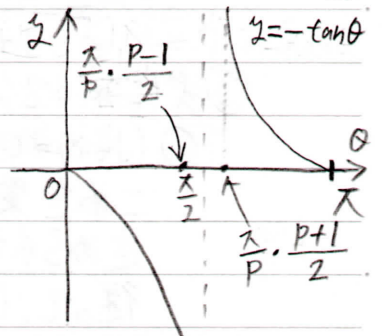 y
y=-tanθ
π/p · p-1/2
θ
0
π/2
π
π/p · p+1/2